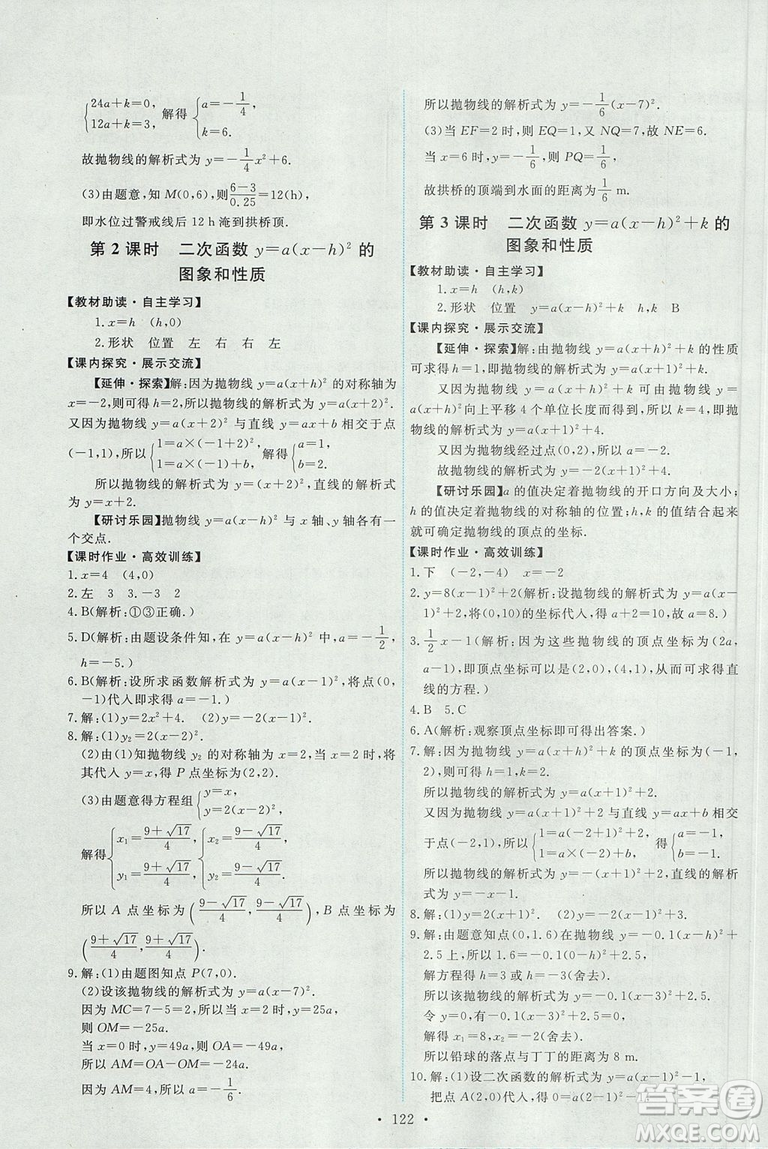 {24a+k=0, 12a+k=3, 解得 {a=-1/4, k=6.
故抛物线的解析式为 y=-1/4x²+6.
(3)由题意,知 M(0,6),(6-3)/0.25=12(h).
即水位过警戒线后 12 h 淹到拱桥顶.
第 2 课时 二次函数 y=a(x-h)² 的
图象和性质
【教材助读·自主学习】
1. x=h (h,0)
2. 形状 位置 左 右 右 左
【课内探究·展示交流】
【延伸·探索】解:因为抛物线 y=a(x+h)² 的对称轴为
x=-2,可得 h=2,所以抛物线的解析式为 y=a(x+2)².
又因为抛物线 y=a(x+2)² 与直线 y=ax+b 相交于点
(-1,1),所以 {1=a×(-1+2)², 1=a×(-1)+b, 解得 {a=1, b=2.
所以抛物线的解析式为 y=(x+2)²,直线的解析式
为 y=x+2.
【研讨乐园】抛物线 y=a(x-h)² 与 x 轴、y 轴各有一
个交点.
【课时作业·高效训练】
1. x=4 (4,0)
2. 左 3 3. -3 2
4. B(解析:①③正确.)
5. D(解析:由题设条件知,在 y=a(x-h)² 中,a=-1/2,
h=-5.)
6. B(解析:设所求函数解析式为 y=a(x-h)²,将点(0,
-1)代入即可求得 a=-1.)
7. 解:(1)y=2x²+4. (2)y=-2(x+1)².
8. 解:(1)y₂=2(x-2)².
(2)由(1)知抛物线 y₂ 的对称轴为 x=2;当 x=2 时,将
其代入,可得 P 点坐标为(2,2).
(3)由题意得方程组 {y=x, y=2(x-2)².
解得 {x₁=(9+√17)/4, y₁=(9+√17)/4, {x₂=(9-√17)/4, y₂=(9-√17)/4.
所以 A 点坐标为((9-√17)/4,(9-√17)/4),B 点坐标为
((9+√17)/4,(9+√17)/4).
9. 解:(1)由题图知点 P(7,0).
(2)设该抛物线的解析式为 y=a(x-7)².
因为 MC=7-5=2,所以当 x=2 时,y=25a,
则 OM=-25a.
当 x=0 时,y=49a,则 OA=-49a.
因为 AM=OA-OM=-24a=4,所以 a=-1/6.
所以抛物线的解析式为 y=-1/6(x-7)².
(3)当 EF=2 时,则 EQ=1,又 NQ=7,故 NE=6.
当 x=6 时,y=-1/6,则 PQ=1/6,
故拱桥的顶端到水面的距离为 1/6 m.
第 3 课时 二次函数 y=a(x-h)²+k 的
图象和性质
【教材助读·自主学习】
1. x=h (h,k)
2. 形状 位置 y=a(x-h)²+k h,k B
【课内探究·展示交流】
【延伸·探索】解:由抛物线 y=a(x-h)²+k 的性质
可求得 h=1,即抛物线的解析式为 y=a(x+1)²+k.
又因为抛物线 y=a(x+h)²+k 可由抛物线 y=
a(x+h)² 向上平移 4 个单位长度而得到,所以 k=4,即抛
物线的解析式为 y=a(x+1)²+4.
又因为抛物线经过点(1,0),所以 a=-1.
故抛物线的解析式为 y=-2(x+1)²+4.
【研讨乐园】a 的值决定着抛物线的开口方向及大小;
h 的值决定着抛物线对称轴的位置;h、k 的值结合起来
就可确定抛物线的顶点的坐标.
【课时作业·高效训练】
1. 下 (-2,-4) x=-2
2. y=8(x-9)²+2(解析:设抛物线的解析式为 y=a(x-
9)²+2,将(10,10)的坐标代入,可得出答案.)
3. 1/2x-1(解析:因为这些抛物线的顶点坐标为(2a,
a-1),即顶点可以取(2,0),(4,1),由此即可求得直
线的方程.)
4. B 5. C
6. A(解析:观察顶点坐标即可得出答案.)
7. 解:因为抛物线 y=a(x-k)²+h 的顶点坐标为(-1,
2),所以 k=-1,h=2.
所以抛物线的解析式为 y=a(x+1)²+2.
又因为抛物线 y=a(x+1)²+2 与直线 y=ax+b 相交
于点(-2,1),所以 {1=a(-2+1)²+2, 1=a×(-2)+b, 得 {a=-1, b=-1.
所以抛物线的解析式为 y=-(x+1)²+2,直线的解析
式为 y=-x-1.
8. 解:(1)y=2(x+1)². (2)y=-2(x+1)²+3.
9. 解:由题意知点(0,1.6)在抛物线 y=-0.1(x-h)²+
2.5 上,所以 1.6=-0.1(0-h)²+2.5.
解方程得 h=3 或 h=-3(舍去).
所以该抛物线的解析式为 y=-0.1(x-3)²+2.5.
令 y=0,得 0=-0.1(x-3)²+2.5.
解得 x₁=8,x₂=-2(舍去).
所以铅球的落点与丁丁的距离为 8 m.
10. 解:(1)设二次函数的解析式为 y=a(x-1)²-1.
把点 A(2,0)的坐标代入,得 a-1=0.
· 122 ·
答案圈
MXQE.COM